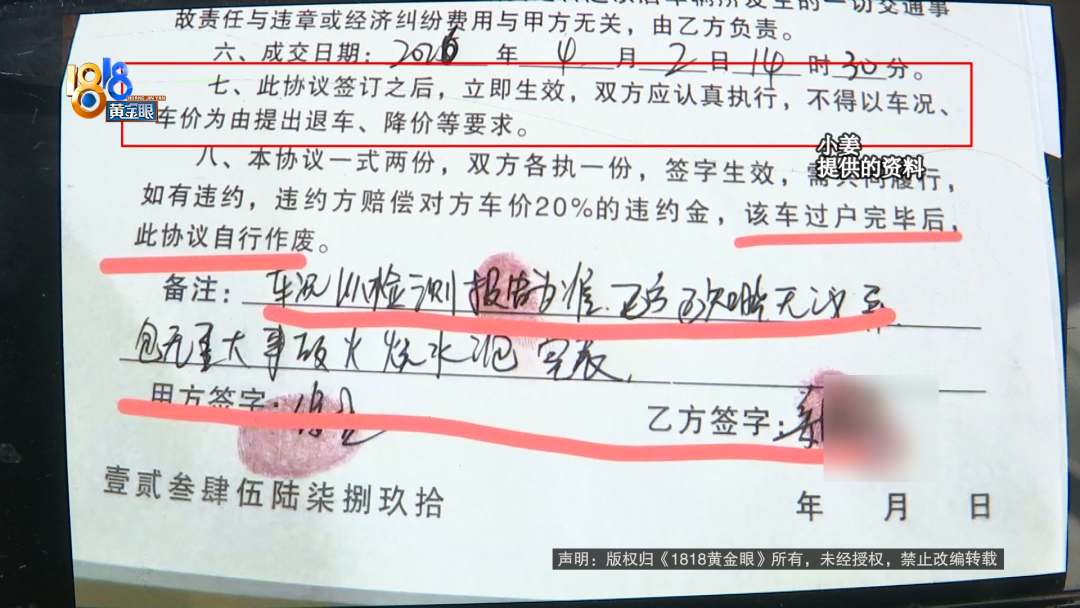 故责任与违章或经济纠纷费用与甲方无关，由乙方负责。
六、成交日期：2026年4月2日14时30分。
七、此协议签订之后，立即生效，双方应认真执行，不得以车况、
车价为由提出退车、降价等要求。
1818
黄金眼
小姜
提供的资料
八、本协议一式两份，双方各执一份，签字生效，需共同履行，
如有违约，违约方赔偿对方车价20%的违约金，该车过户完毕后，
此协议自行作废。
备注：车况以检测报告为准.乙方
包无重大事故火烧水泡
甲方签字：
乙方签字：
壹贰叁肆伍陆柒捌玖拾
年 月 日
声明：版权归《1818黄金眼》所有，未经授权，禁止改编转载